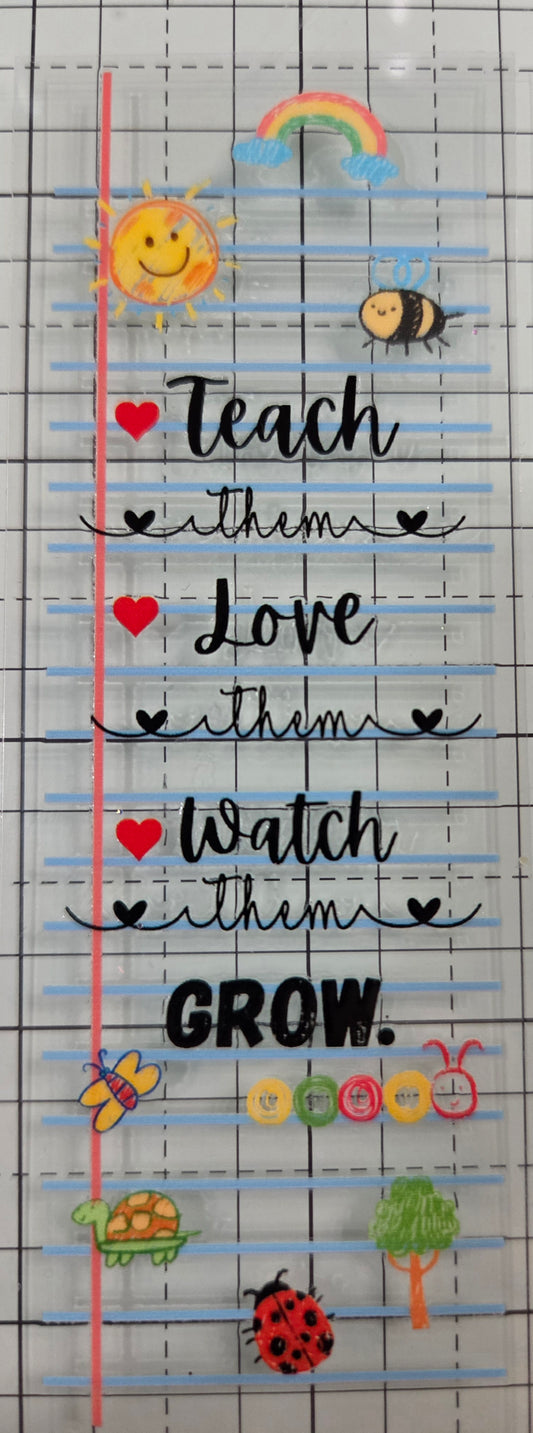 Teach
them
Love
them
Watch
them
GROW.